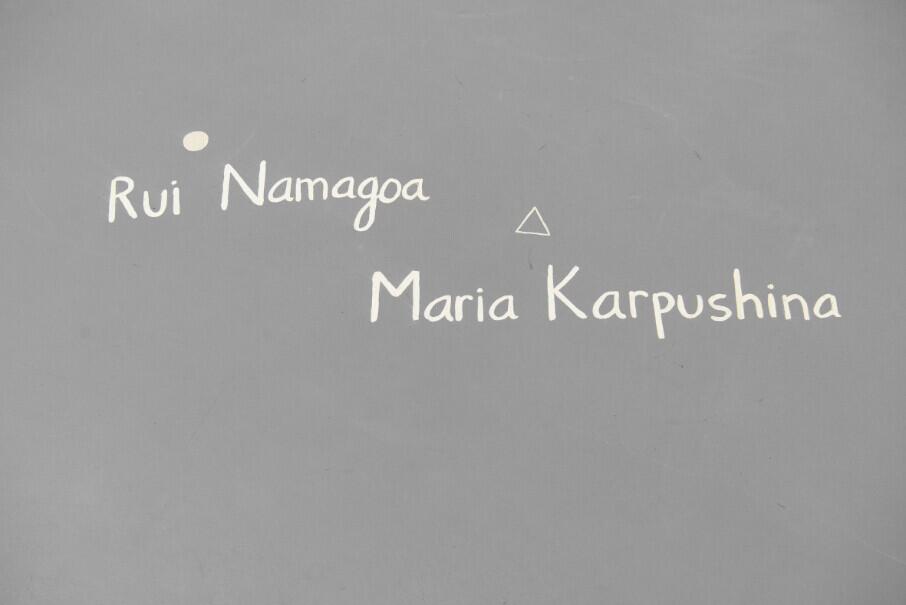 Rui Namagoa
Maria Karpushina